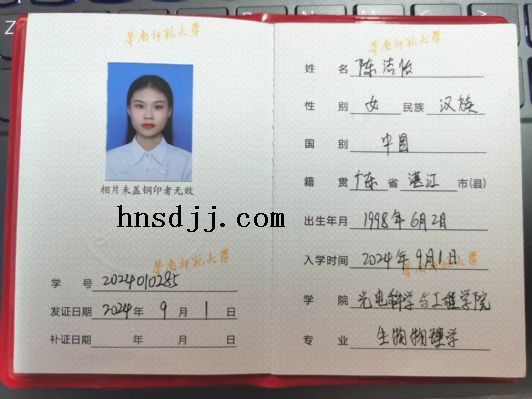 华南师范大学
相片未盖钢印者无效
hnsdjj.com
华南师范大学
学 号 2024010285
发证日期 2024 年 9 月 1 日
补证日期 年 月 日
华南师范大学
姓 名 陈洁怡
性 别 女 民族 汉族
国 别 中国
籍 贯 广东 省 湛江 市(县)
出生年月 1998年6月2日
入学时间 2024年9月1日
华南师范大学
学 院 光电科学与工程学院
专 业 生物物理学